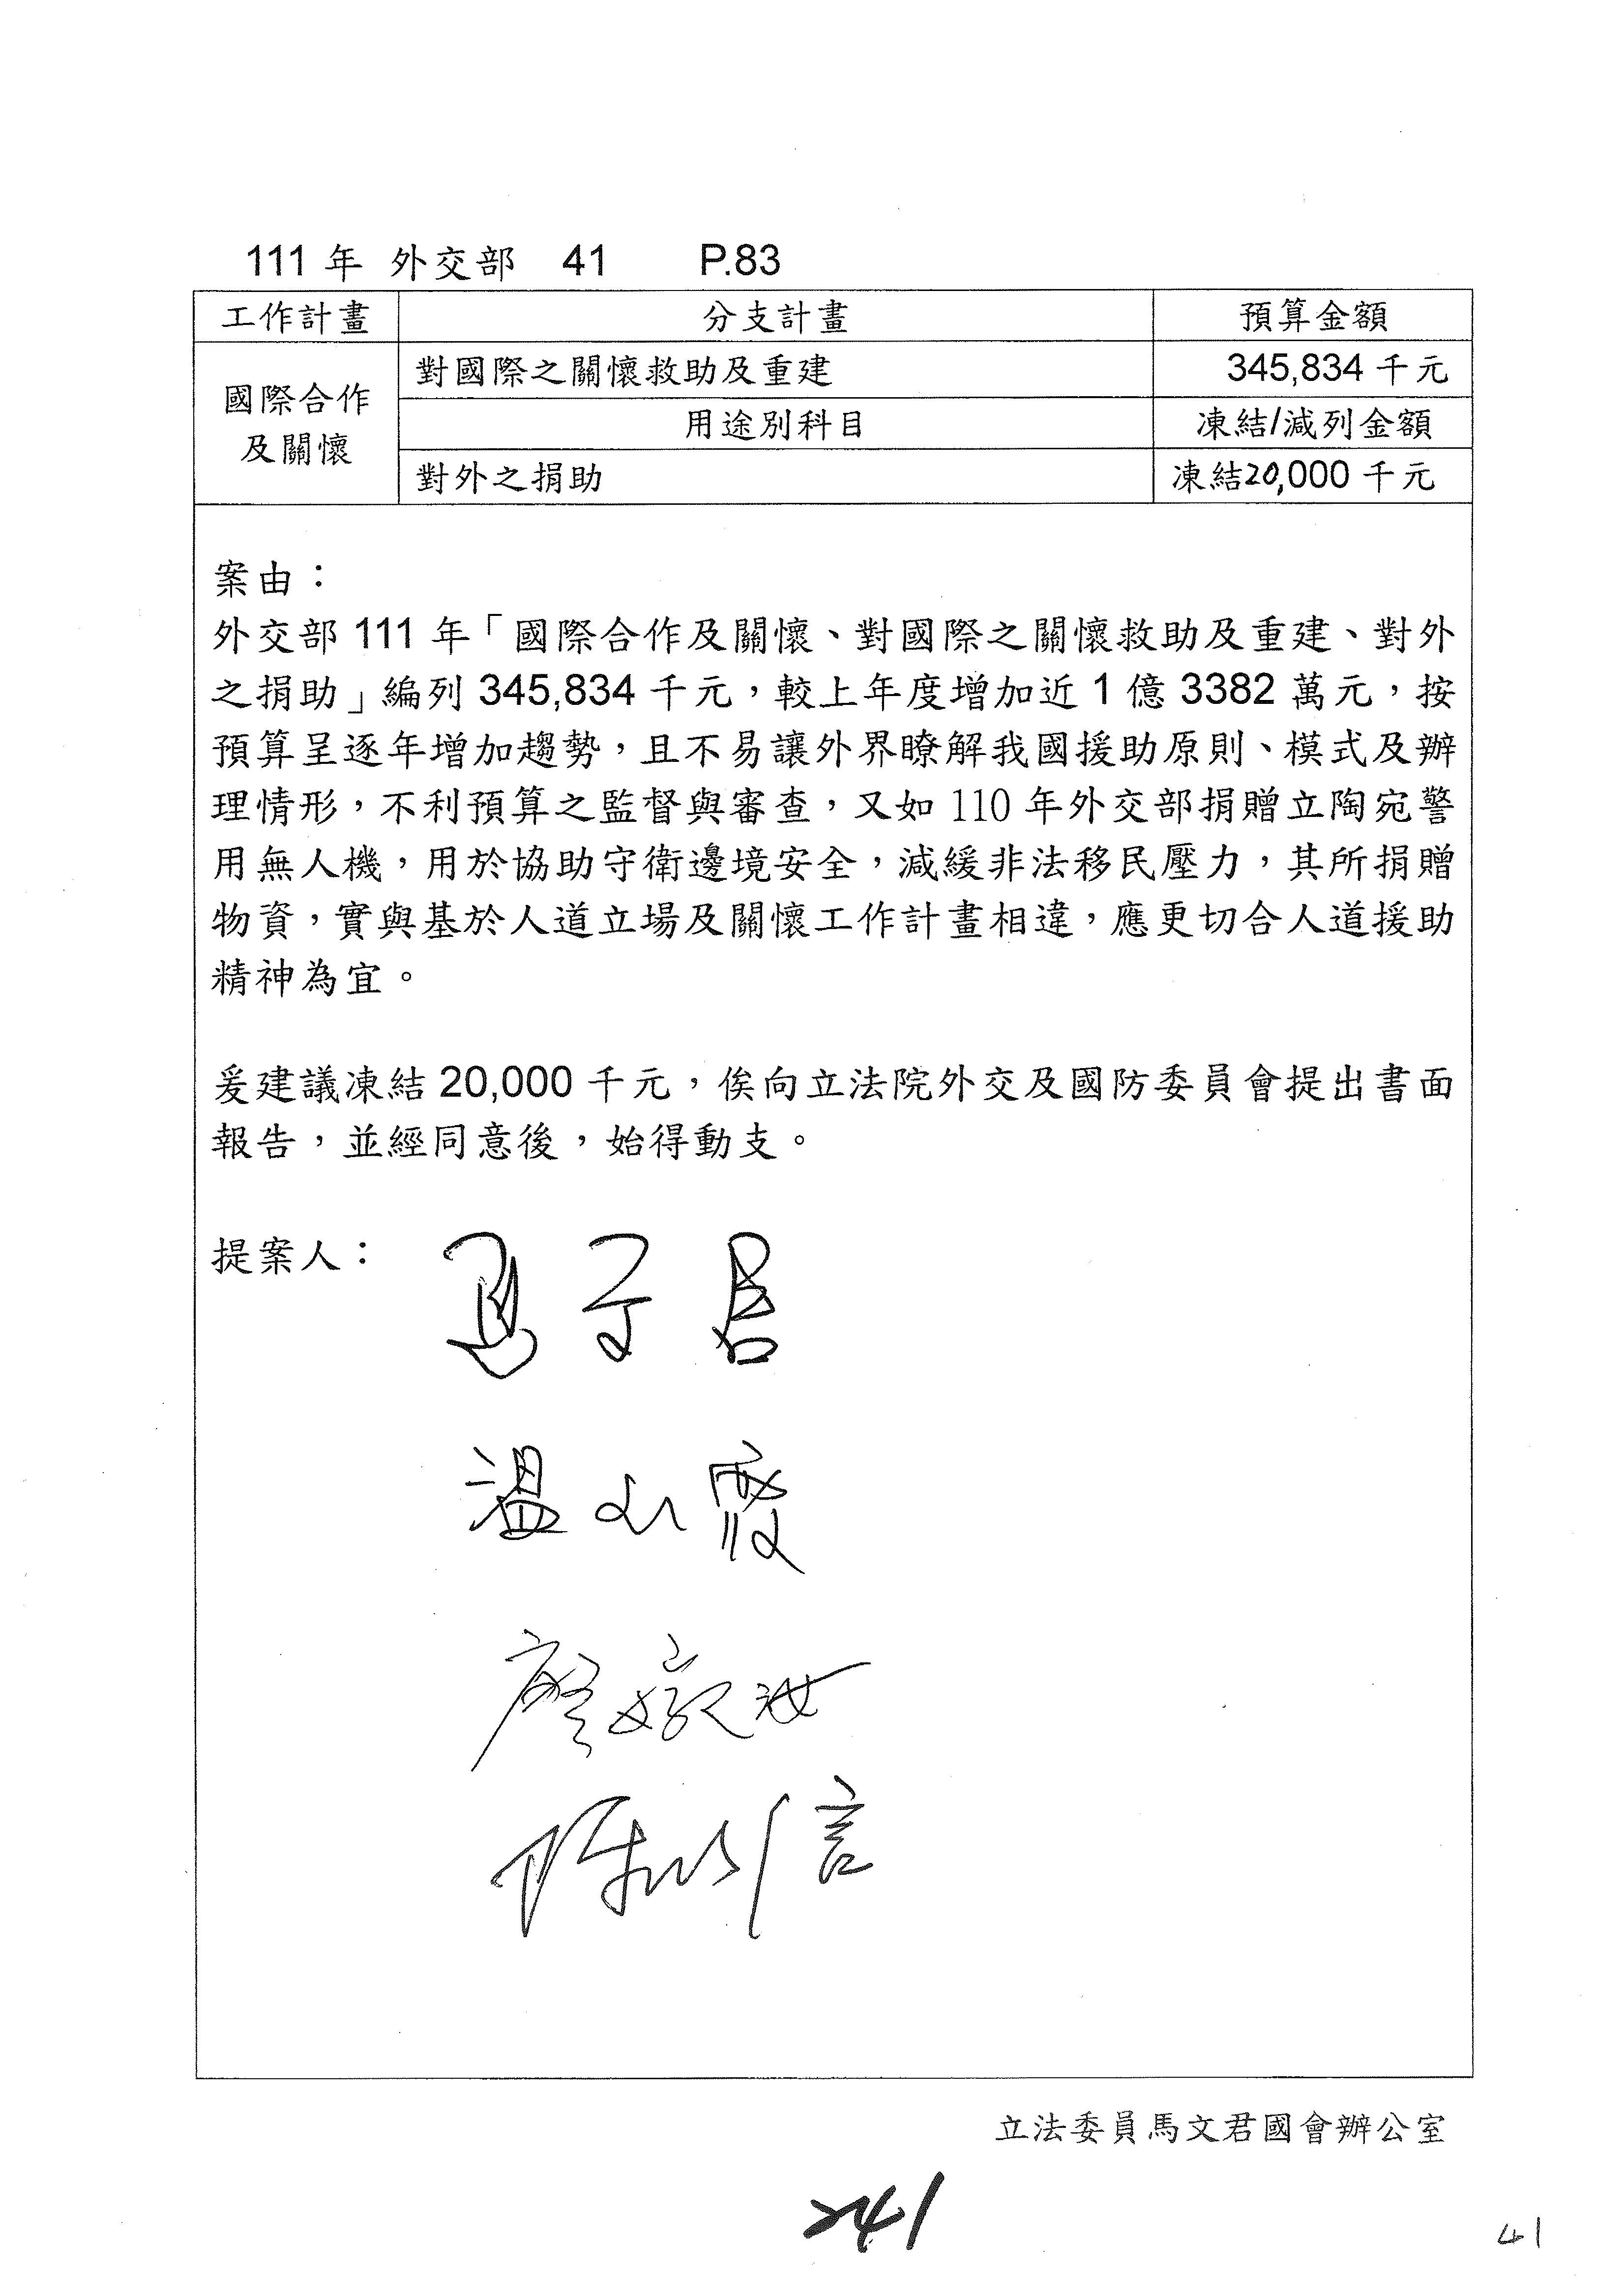 111 年 外交部 41 P.83
工作計畫 分支計畫 預算金額
國際合作及關懷 對國際之關懷救助及重建 345,834 千元
用途別科目 凍結/減列金額
對外之捐助 凍結20,000 千元
案由：
外交部 111 年「國際合作及關懷、對國際之關懷救助及重建、對外
之捐助」編列 345,834 千元，較上年度增加近 1 億 3382 萬元，按
預算呈逐年增加趨勢，且不易讓外界瞭解我國援助原則、模式及辦
理情形，不利預算之監督與審查，又如 110 年外交部捐贈立陶宛警
用無人機，用於協助守衛邊境安全，減緩非法移民壓力，其所捐贈
物資，實與基於人道立場及關懷工作計畫相違，應更切合人道援助
精神為宜。
爰建議凍結 20,000 千元，俟向立法院外交及國防委員會提出書面
報告，並經同意後，始得動支。
提案人：
馬文君
溫玉霞
陳以信
立法委員馬文君國會辦公室
241
41